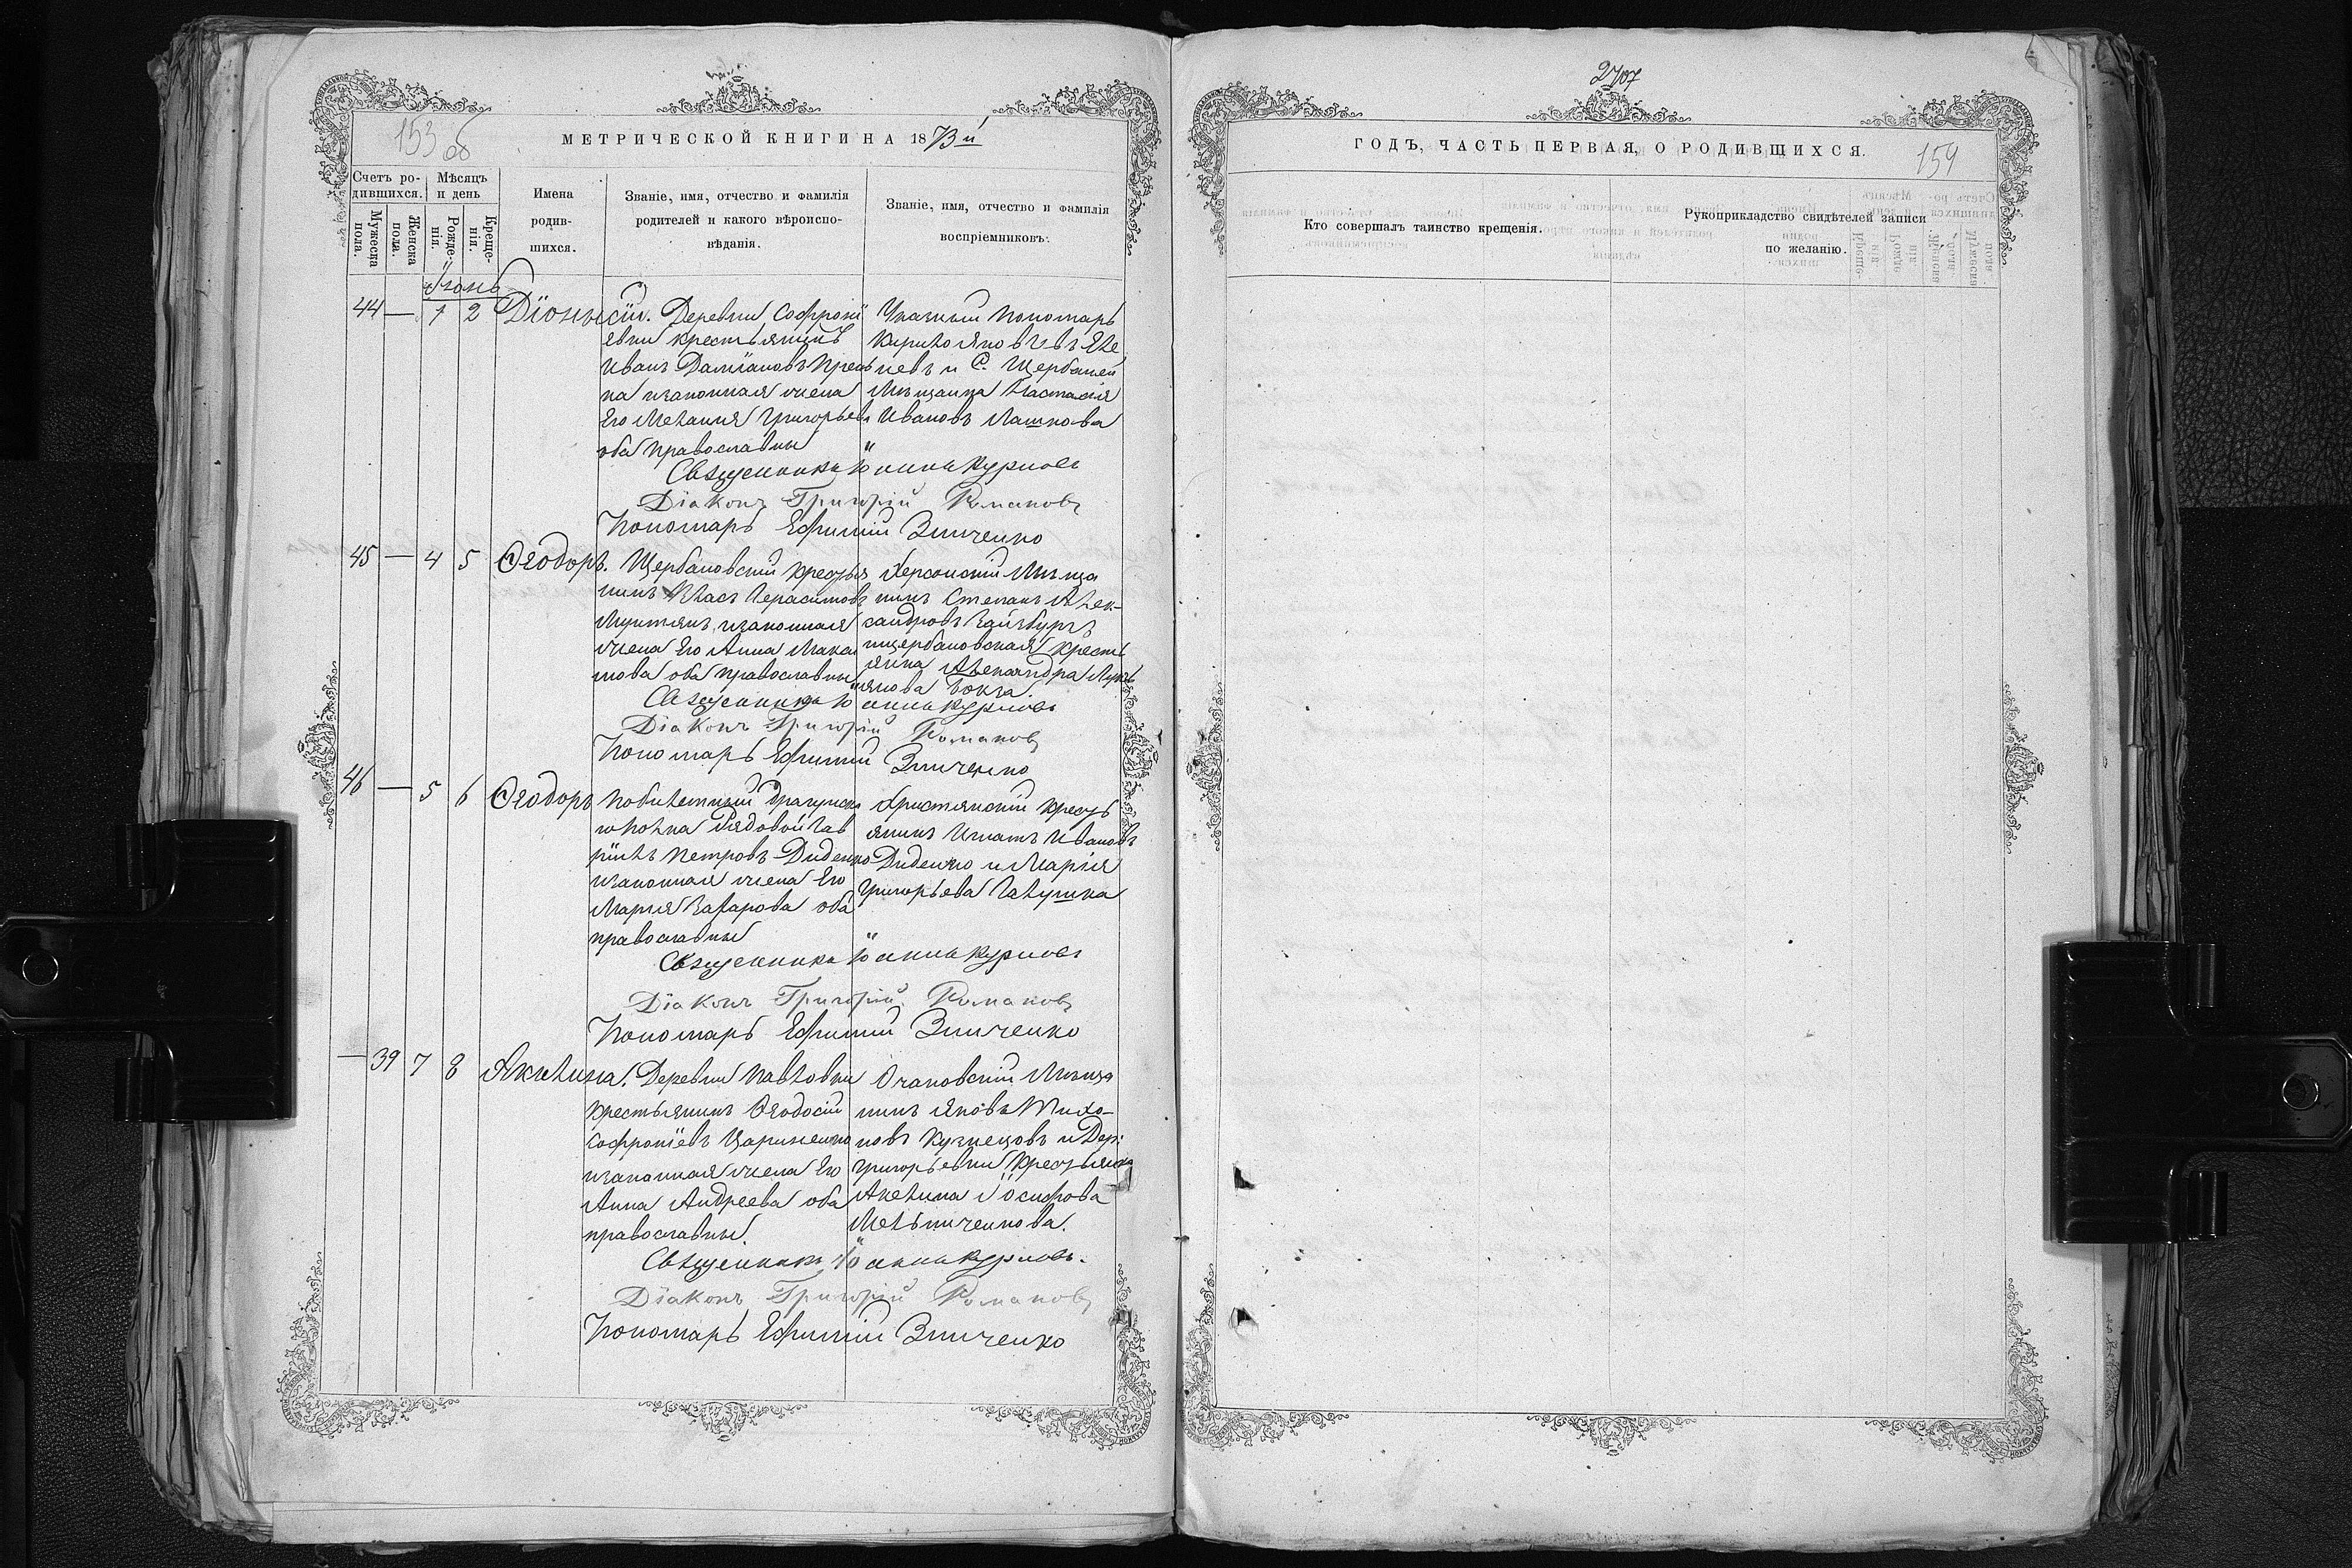 153 об
МЕТРИЧЕСКОЙ КНИГИ НА 1873 й
Счетъ родившихся.
Мѣсяцъ и день
Мужеска пола.
Женска пола.
Рожденія.
Крещенія.
Имена родившихся.
Званіе, имя, отчество и фамилія
родителей и какого вѣроиспо-
вѣданія.
Званіе, имя, отчество и фамилія
воспріемниковъ.
Іюнь
44 — 1 2 Діонисій. Деревни Софроні
евки крестьянинъ
Иванъ Даміановъ
законная жена
Его Меланія Григорьева
оба православны
Указный Пономарь
и С. Щербаней
Мѣщанка Настасія
Иванова Лашкова
Священникъ Іоаннъ Курловъ
Діаконъ Григорій Романовъ
Пономарь Ефимій Зинченко
45 — 4 5 Ѳеодоръ. Щербановскій крестья
нинъ Власъ Герасимовъ
Мунтянъ, и законная
жена Его Анна Макси
мова оба православны
Херсонскій Мѣща
нинъ Степанъ Алек-
сандровъ
и щербановская крестъ
янка Александра Лукь
янова
Священникъ Іоаннъ Курловъ
Діаконъ Григорій Романовъ
Пономарь Ефимій Зинченко
46 — 5 6 Ѳеодоръ Кобилетный драгунска
го полка Рядовой Гав
ріилъ Петровъ Диденко
и законная жена Его
Марія Захарова оба
православны
Христянскій крестъ
янинъ Игнатъ Ивановъ
Диденко и Марія
Григорьева Галушка
Священникъ Іоаннъ Курловъ
Діаконъ Григорій Романовъ
Пономарь Ефимій Зинченко
— 39 7 8 Акилина. Деревни Павловки
крестьянинъ Ѳеодосій
Софроніевъ Цариненко
и законная жена Его
Анна Андреева оба
православны.
Очаковскій Мѣща
нинъ Яковъ Тихо-
новъ Кузнецовъ и Дер:
Григорьевки крестьянка
Акелина Іосифова
Мельниченкова.
Священникъ Іоаннъ Курловъ.
Діаконъ Григорій Романовъ
Пономарь Ефимій Зинченко
2707
ГОДЪ, ЧАСТЬ ПЕРВАЯ, О РОДИВШИХСЯ.
154
Кто совершалъ таинство крещенія.
Рукоприкладство свидѣтелей записи
по желанію.